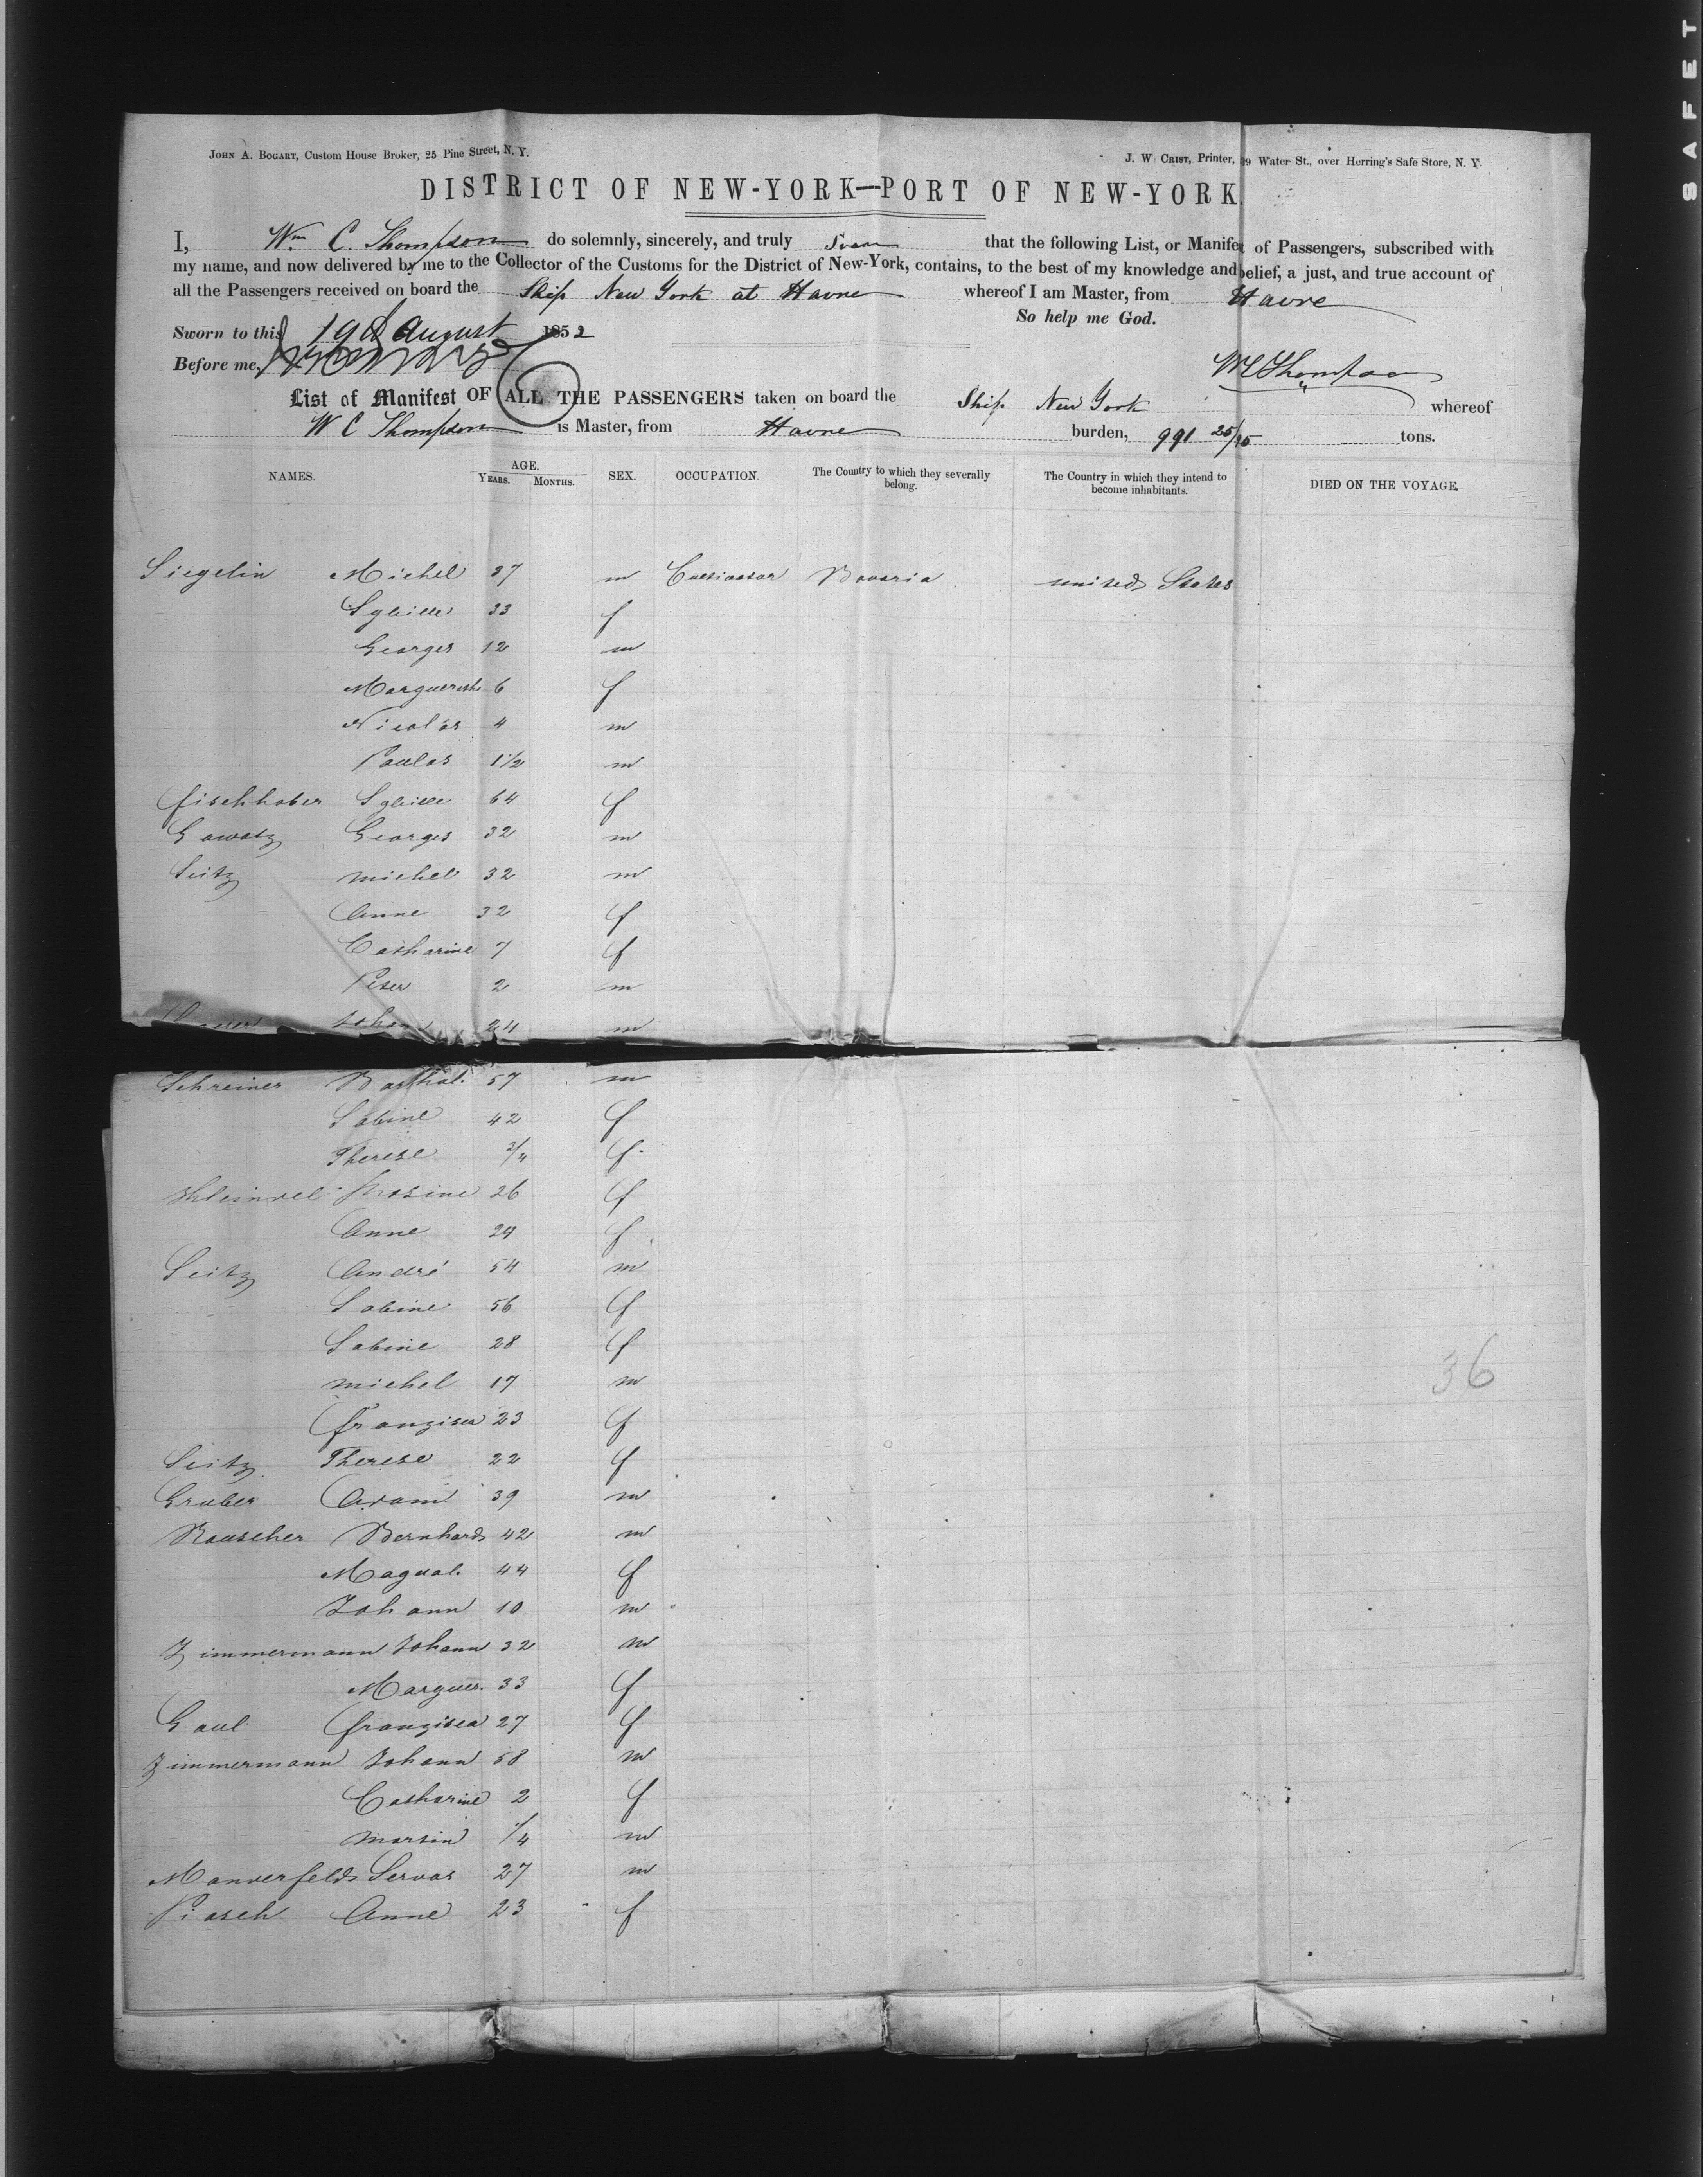 SAFET
JOHN A. BOGART, Custom House Broker, 25 Pine Street, N. Y.
J. W. CRIST, Printer, 9 Water St., over Herring's Safe Store, N. Y.
DISTRICT OF NEW-YORK—PORT OF NEW-YORK
I, Wm C. Thompson do solemnly, sincerely, and truly Swear that the following List, or Manifes of Passengers, subscribed with
my name, and now delivered by me to the Collector of the Customs for the District of New-York, contains, to the best of my knowledge and belief, a just, and true account of
all the Passengers received on board the Ship New York at Havre whereof I am Master, from Havre
So help me God.
Sworn to this 19th August 1852
Before me,
W C Thompson
List of Manifest OF ALL THE PASSENGERS taken on board the Ship New York whereof
W C Thompson is Master, from Havre burden, 991 25/95 tons.
NAMES. AGE. YEARS. MONTHS. SEX. OCCUPATION. The Country to which they severally belong. The Country in which they intend to become inhabitants. DIED ON THE VOYAGE.
Siegelin Michel 37 m Cultivator Bavaria United States
Sybille 33 f
Georges 12 m
Marguerith 6 f
Nicolas 4 m
Paulos 1 1/2 m
Fischhaber Sybille 64 f
Gawatz Georges 32 m
Seitz michel 32 m
Anne 32 f
Catharine 7 f
Peter 2 m
Johann 24 m
Schreiner Barthol. 57 m
Sabine 42 f
Therese 3/4 f
Rosine 26 f
Anne 24 f
Seitz André 54 m
Sabine 56 f
Sabine 28 f
michel 17 m
Franzisca 23 f
Seitz Therese 22 f
Gruber Adam 39 m
Rauscher Bernhard 42 m
Magdal. 44 f
Johann 10 m
Zimmermann Johann 32 m
Marguer. 33 f
Gaul Franzisca 27 f
Zimmermann Johann 58 m
Catharine 2 f
Martin 1/4 m
Manderfeld Servas 27 m
Piasch Anne 23 f
36